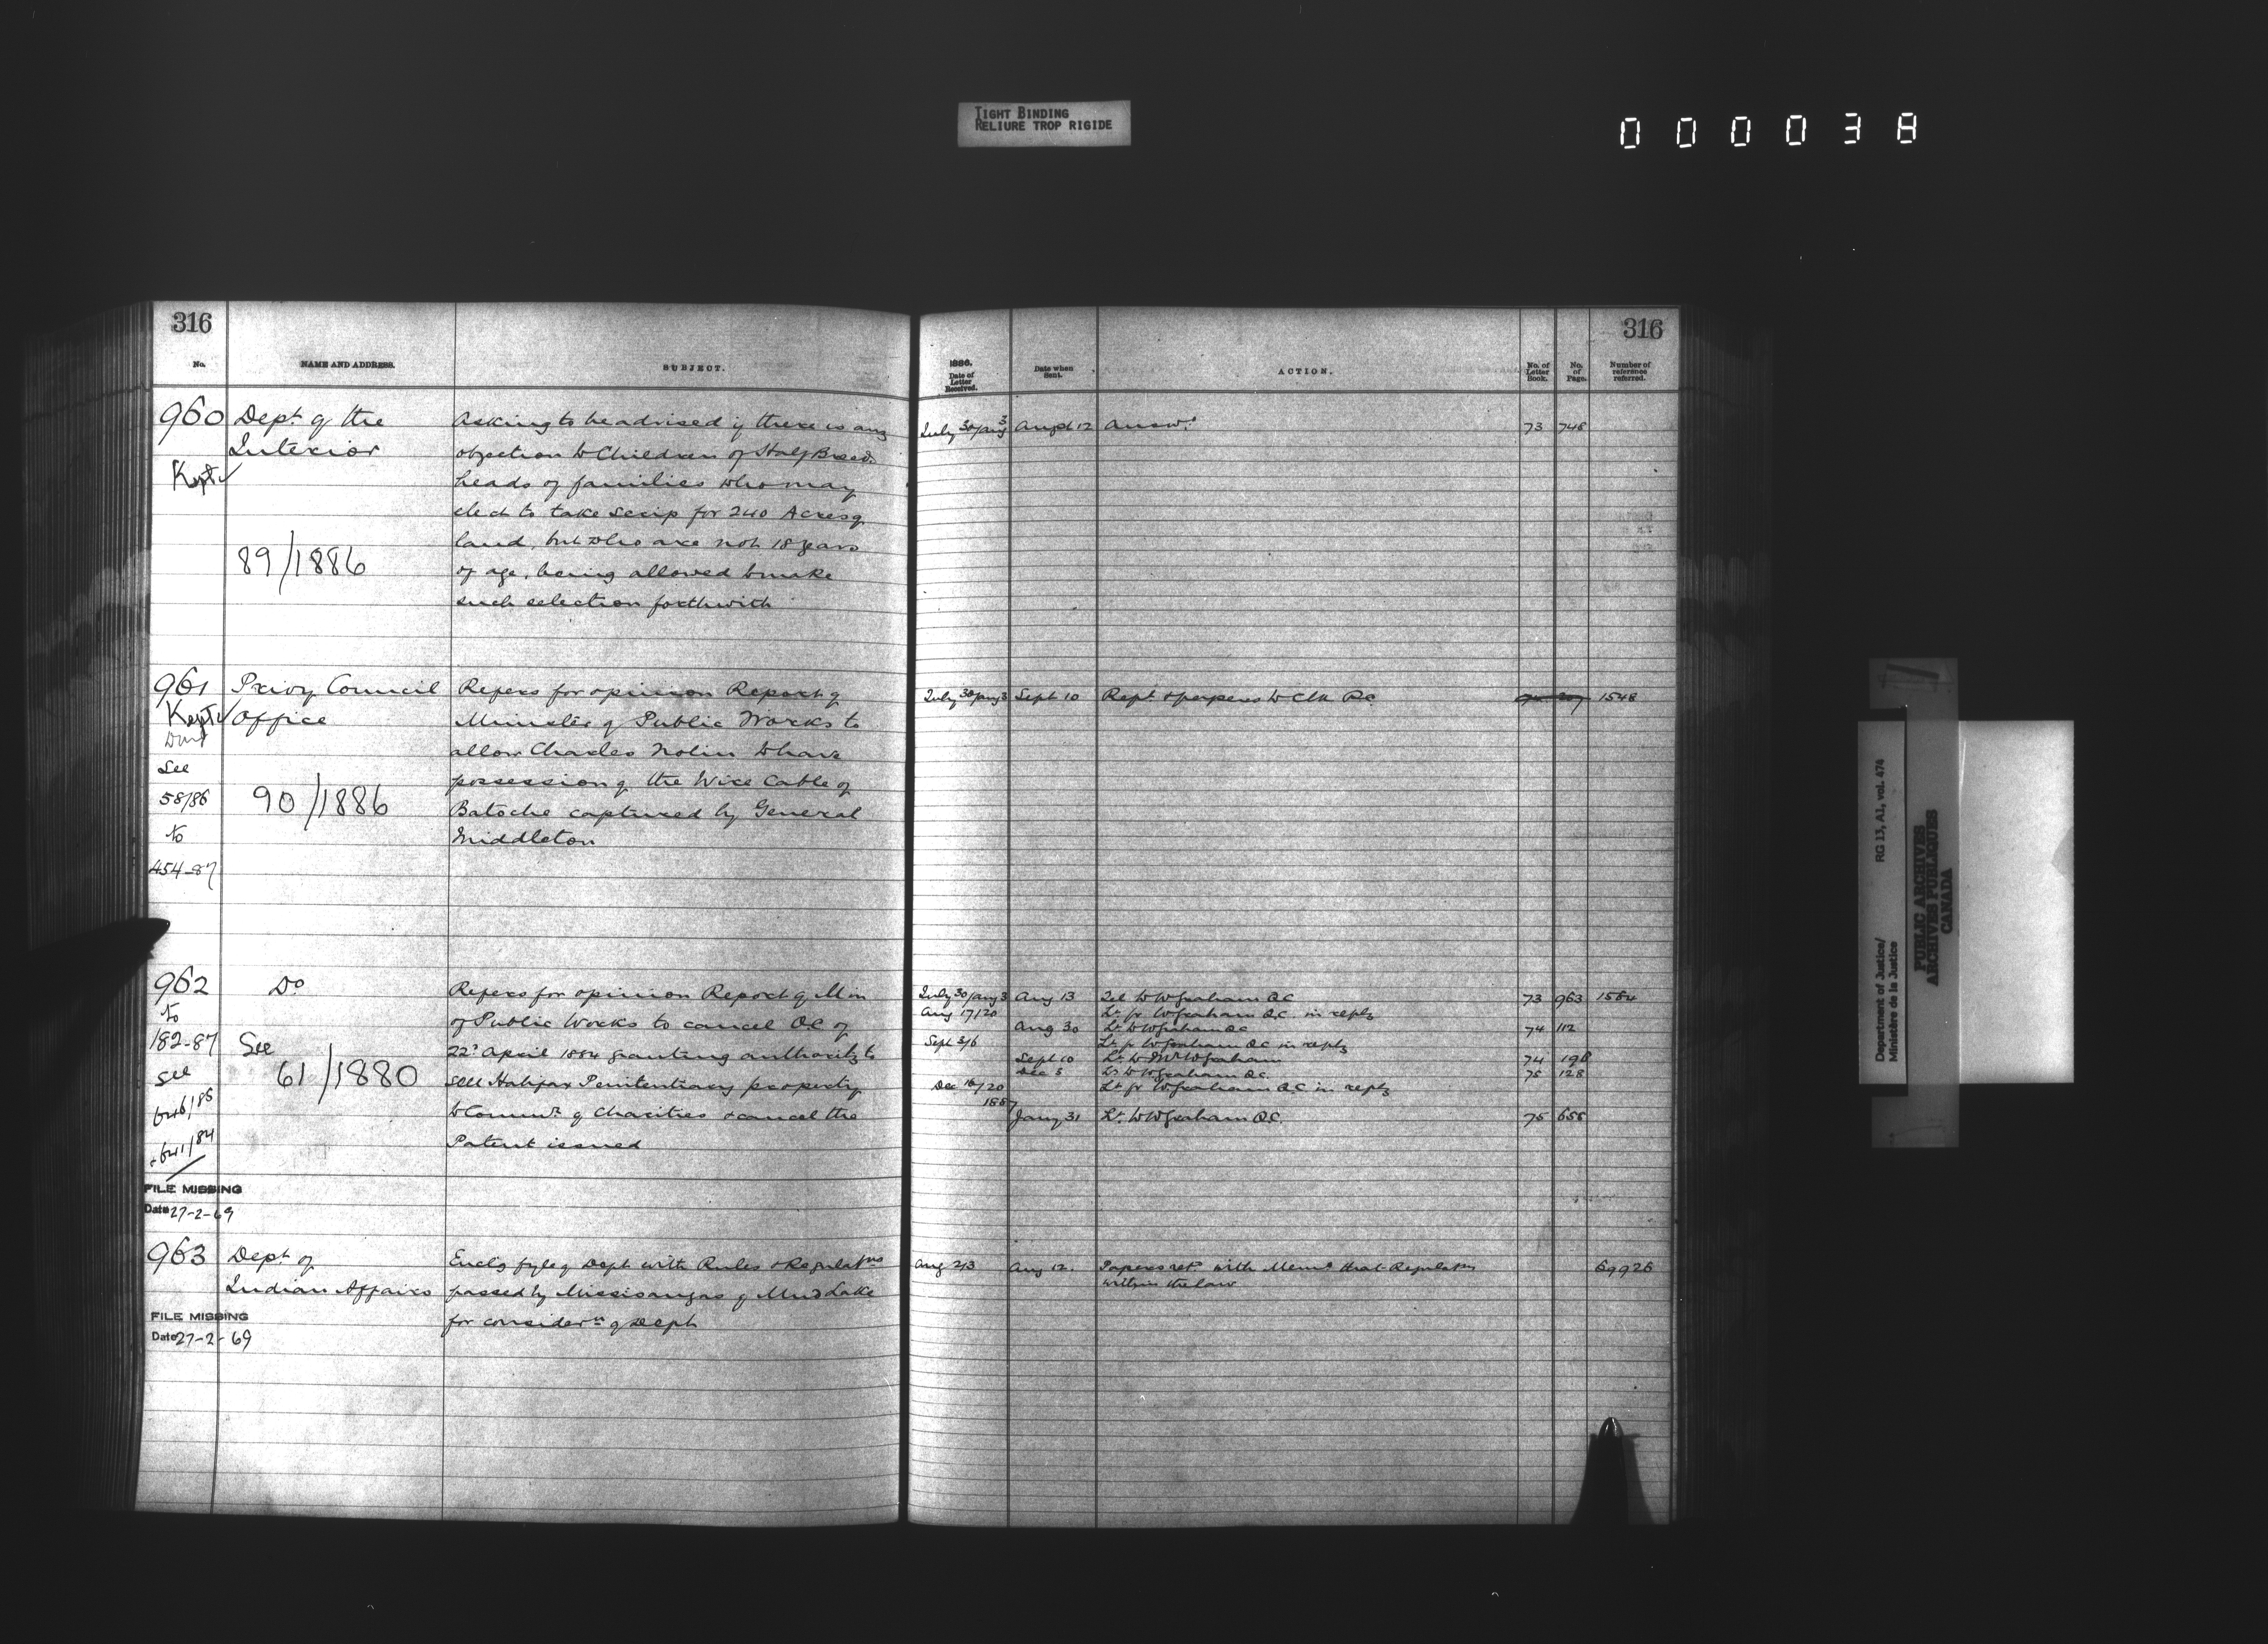 TIGHT BINDING
RELIURE TROP RIGIDE
000038
316
No.
NAME AND ADDRESS.
SUBJECT.
960
Dept of the
Interior
Kept
89/1886
Asking to be advised if there is any
objection to Children of Half Breed
heads of families who may
elect to take scrip for 240 Acres of
land, but who are not 18 years
of age, being allowed to make
such selection forthwith
961
Privy Council
Kept Office
See
58/86
to
454-87
90/1886
Refers for opinion Report of
Minister of Public Works to
allow Charles Nolin to have
possession of the Wire Cable of
Batoche captured by General
Middleton
962
to
182-87
see
646/85
+641/84
Do
See
61/1880
Refers for opinion Report of Min
of Public Works to cancel O.C of
22d April 1884 granting authority to
sell Halifax Penitentiary property
to Commrs of Charities & cancel the
Patent issued
FILE MISSING
Date 27-2-69
963
Dept of
Indian Affairs
Enclg fyle of Dept with Rules & Regulatns
passed by Missisaugas of Mud Lake
for considern of Deptn
FILE MISSING
Date 27-2-69
316
1886.
Date of
Letter
Received.
Date when
Sent.
ACTION.
No. of
Letter
Book.
No.
of
Page.
Number of
reference
referred.
July 30/Aug 3 Augst 12 Answd 73 748
July 30/Aug 3 Sept 10 Rept & papers to Clk P.C 1548
July 30/Aug 3 Aug 13 Tel to W Graham QC 73 963 1564
Aug 17/20 Lr fr W Graham Q.C. in reply
Aug 30 Lr to W Graham QC 74 112
Sept 3/6 Lr fr W Graham QC in reply
Sept 10 Lr to W Graham 74 198
Dec 5 Lr to W Graham QC 75 128
Dec 16/20 Lr fr W Graham Q.C in reply
1887
Jany 31 Lr to W Graham Q.C. 75 658
Aug 2/3 Aug 12. Papers retd with Memo that Regulatns 69926
within the law
Department of Justice/ RG 13, A1, vol. 474
Ministère de la Justice
PUBLIC ARCHIVES
ARCHIVES PUBLIQUES
CANADA